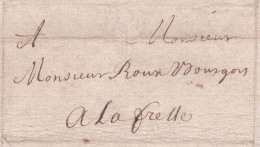 A Monsieur
Monsieur Roux Bourgois
A la frette